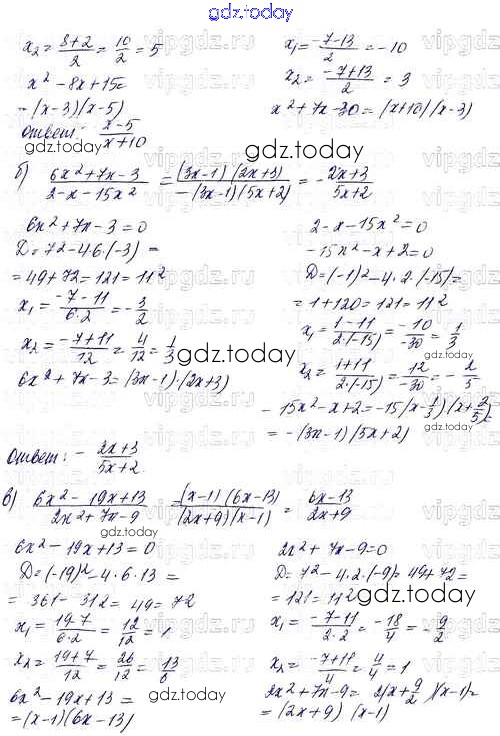 gdz.today
x₂ = (8+2)/2 = 10/2 = 5
x² - 8x + 15 =
= (x-3)(x-5)
Ответ: (x-5)/(x+10)
x₁ = (-7-13)/2 = -10
x₂ = (-7+13)/2 = 3
x² + 7x - 30 = (x+10)(x-3)
gdz.today
б) (6x²+7x-3)/(2-x-15x²) = ((3x-1)(2x+3))/(-(3x-1)(5x+2)) = -(2x+3)/(5x+2)
6x² + 7x - 3 = 0
D = 7² - 4·6·(-3) =
= 49 + 72 = 121 = 11²
x₁ = (-7-11)/(6·2) = -3/2
x₂ = (-7+11)/12 = 4/12 = 1/3
gdz.today
6x² + 7x - 3 = (3x-1)·(2x+3)
2 - x - 15x² = 0
-15x² - x + 2 = 0
D = (-1)² - 4·2·(-15) =
= 1 + 120 = 121 = 11²
x₁ = (1-11)/(2·(-15)) = -10/-30 = 1/3
x₂ = (1+11)/(2·(-15)) = 12/-30 = -2/5
-15x² - x + 2 = -15(x-1/3)(x+2/5) =
= -(3x-1)(5x+2)
Ответ: -(2x+3)/(5x+2)
gdz.today
в) (6x²-19x+13)/(2x²+7x-9) = ((x-1)(6x-13))/((2x+9)(x-1)) = (6x-13)/(2x+9)
gdz.today
6x² - 19x + 13 = 0
D = (-19)² - 4·6·13 =
= 361 - 312 = 49 = 7²
x₁ = (19-7)/(6·2) = 12/12 = 1
x₂ = (19+7)/12 = 26/12 = 13/6
6x² - 19x + 13 =
= (x-1)(6x-13)
gdz.today
2x² + 7x - 9 = 0
D = 7² - 4·2·(-9) = 49 + 72 =
= 121 = 11²
gdz.today
x₁ = (-7-11)/(2·2) = -18/4 = -9/2
x₂ = (-7+11)/4 = 4/4 = 1
2x² + 7x - 9 = 2(x+9/2)(x-1) =
= (2x+9)(x-1)